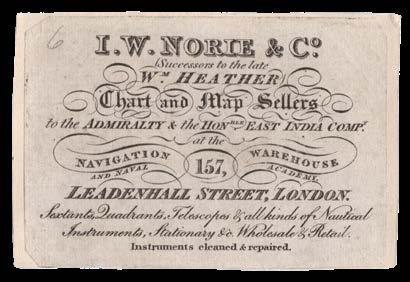 6
I. W. NORIE & Co.
Successors to the late
Wm. HEATHER
Chart and Map Sellers
to the ADMIRALTY & the HONBLE EAST INDIA COMPY.
at the
NAVIGATION 157, WAREHOUSE
AND NAVAL ACADEMY,
LEADENHALL STREET, LONDON.
Sextants, Quadrants, Telescopes & all kinds of Nautical
Instruments, Stationary &c. Wholesale & Retail.
Instruments cleaned & repaired.